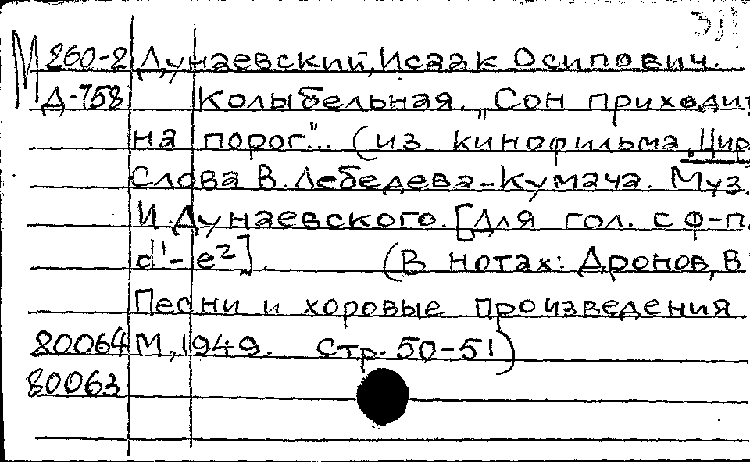 М 260-2 Дунаевский, Исаак Осипович.
Д-758 Колыбельная. „Сон приходит
на порог"... (из кинофильма „Цир
Слова В. Лебедева-Кумача. Муз.
И. Дунаевского. [Для гол. с ф-п.
d¹-e²]. (В нотах: Дронов, В
Песни и хоровые произведения
80064 М, 1949. Стр. 50-51)
80063